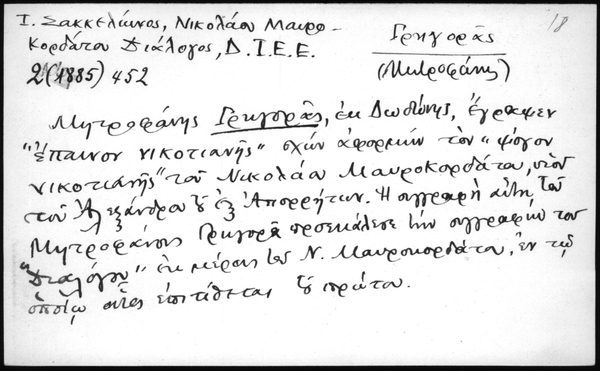 18
Ι. Σακκελίωνος, Νικολάου Μαυρο-
κορδάτου Διάλογος, Δ.Ι.Ε.Ε.
2 (1885) 452
Γρηγορᾶς
(Μητροφάνης)
Μητροφάνης Γρηγορᾶς, ἐκ Δωδώνης, ἔγραψεν
"ἔπαινον νικοτιανῆς" σχὼν ἀφορμὴν τὸν "ψόγον
νικοτιανῆς" τοῦ Νικολάου Μαυροκορδάτου, υἱοῦ
τοῦ Ἀλεξάνδρου τοῦ ἐξ Ἀπορρήτων. Ἡ συγγραφὴ αὕτη τοῦ
Μητροφάνους Γρηγορᾶ προσεκάλεσε τὴν συγγραφὴν τοῦ
"Διαλόγου" ἐκ μέρους τοῦ Ν. Μαυροκορδάτου, ἐν τῷ
ὁποίῳ οὗτος ἐπιτίθεται τοῦ πρώτου.